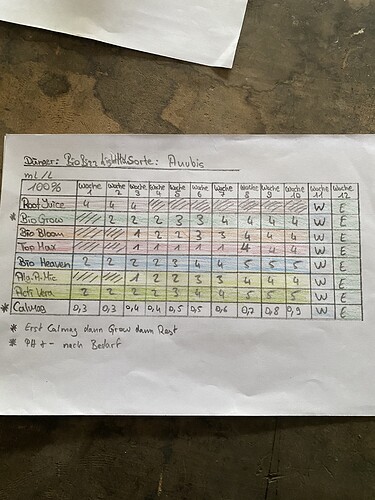 Dünger: BioBizz Light Mix Sorte: Anubis
ml/L
100% Woche 1 Woche 2 Woche 3 Woche 4 Woche 5 Woche 6 Woche 7 Woche 8 Woche 9 Woche 10 Woche 11 Woche 12
Root Juice 4 4 4 W E
* Bio Grow 2 2 2 3 3 4 4 4 4 W E
Bio Bloom 1 2 2 3 3 4 4 4 W E
Top Max 1 1 1 1 1 4 4 4 W E
Bio Heaven 2 2 2 2 3 4 4 5 5 5 W E
Alg.A.Mic 1 2 2 3 3 4 4 4 W E
Acti Vera 2 2 2 2 3 4 4 5 5 5 W E
* Calmag 0,3 0,3 0,4 0,4 0,5 0,5 0,6 0,7 0,8 0,9 W E
* Erst Calmag dann Grow dann Rest
* PH +- nach Bedarf